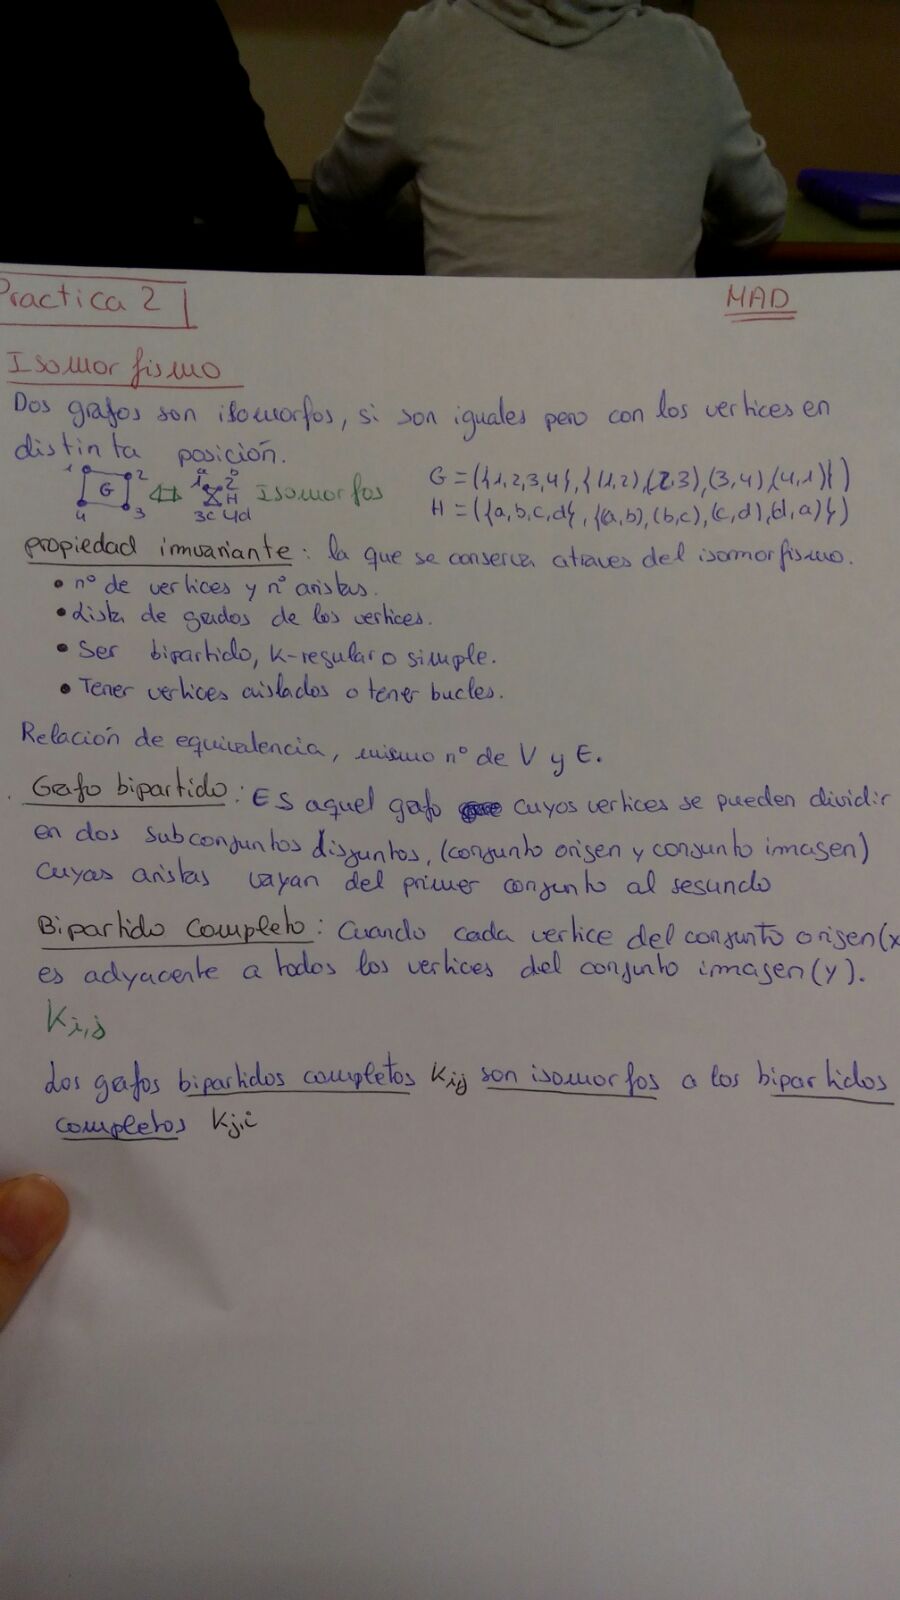 Practica 2
MAD
Isomorfismo
Dos grafos son isomorfos, si son iguales pero con los vertices en
distinta posición.
1 2 G 4 3
a b 1 2 H 3c 4d
Isomorfos
G = ({1,2,3,4}, {(1,2),(2,3),(3,4),(4,1)})
H = ({a,b,c,d}, {(a,b),(b,c),(c,d),(d,a)})
propiedad invariante: la que se conserva atraves del isomorfismo.
• nº de vertices y nº aristas.
• Lista de grados de los vertices.
• Ser bipartido, K-regular o simple.
• Tener vertices aislados o tener bucles.
Relación de equivalencia, mismo nº de V y E.
Grafo bipartido: Es aquel grafo cuyos vertices se pueden dividir
en dos subconjuntos disjuntos, (conjunto origen y conjunto imagen)
cuyas aristas vayan del primer conjunto al segundo
Bipartido completo: Cuando cada vertice del conjunto origen(x
es adyacente a todos los vertices del conjunto imagen(y).
Ki,j
Los grafos bipartidos completos Kij son isomorfos a los bipartidos
completos Kj,i